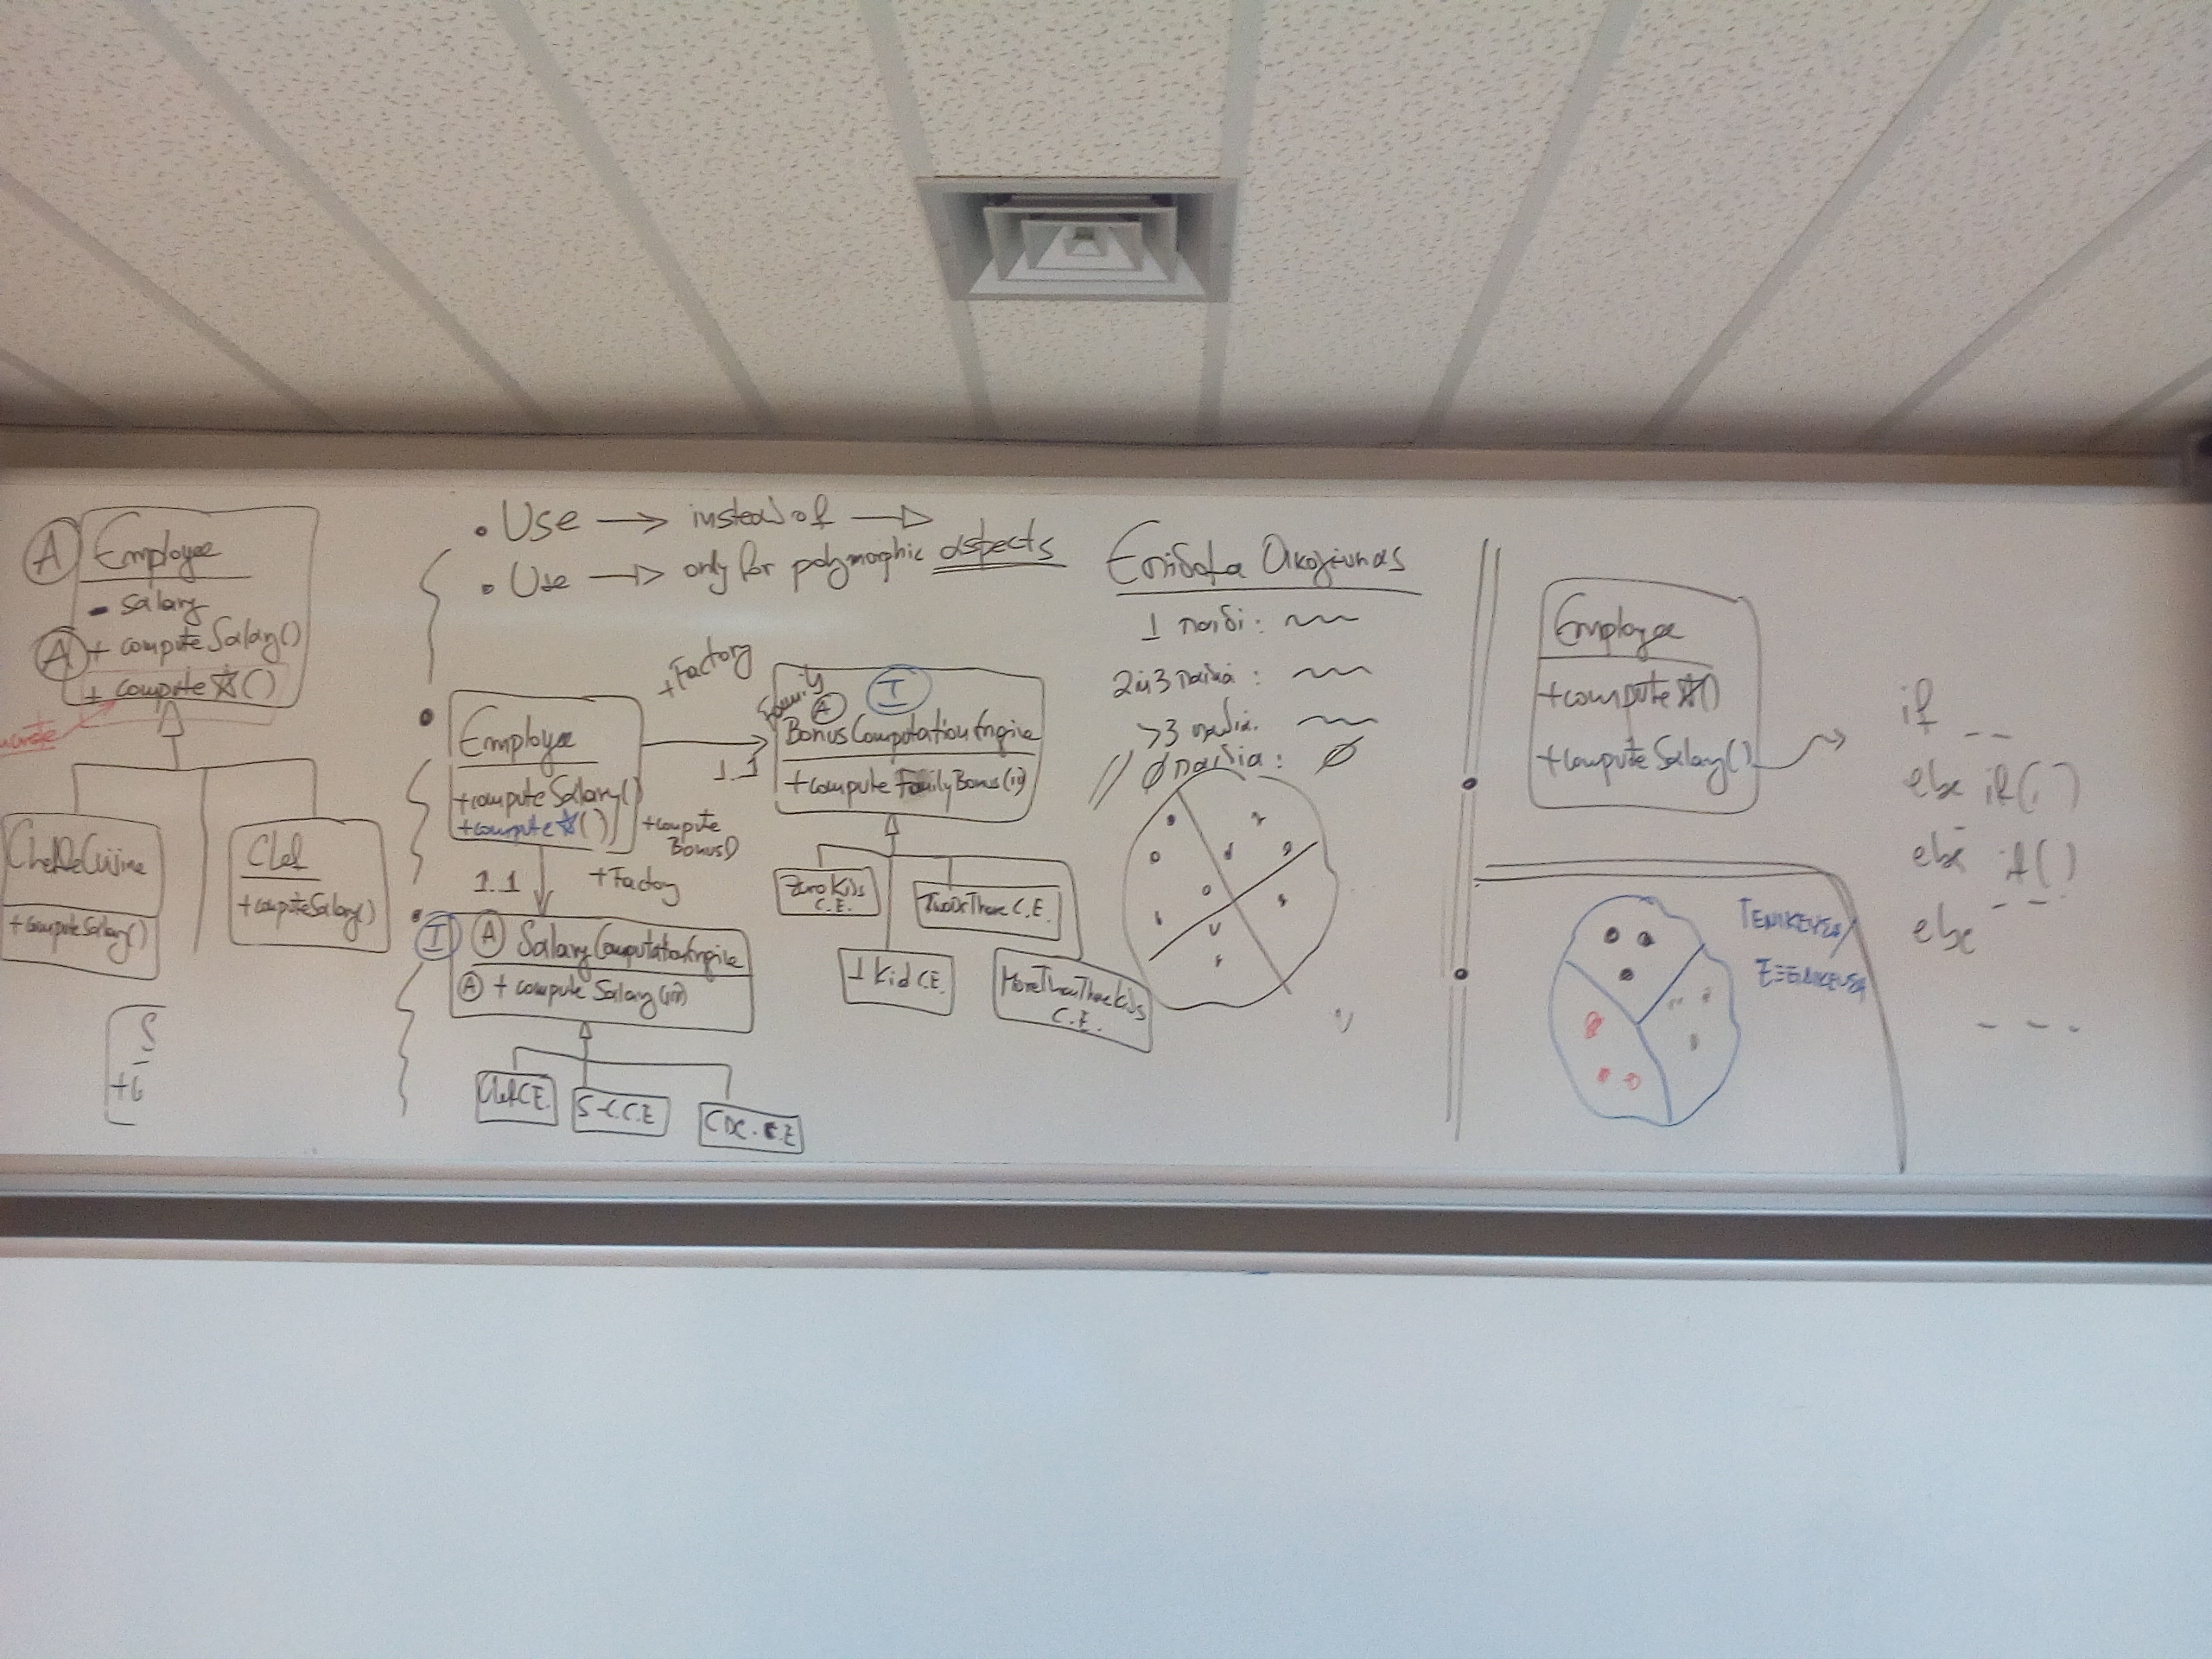 A Employee
- salary
A + computeSalary()
+ compute☆()
ChefDeCuisine
+computeSalary()
Chef
+computeSalary()
S
+6
• Use → instead of —▷
• Use —▷ only for polymorphic aspects
Employee
+computeSalary()
+compute☆()
+Factory
1..1
+compute
Bonus()
1..1
+Factory
Family
A I
BonusComputationEngine
+compute FamilyBonus(in)
ZeroKids
C.E.
1 Kid C.E.
TwoOrThree C.E.
MoreThanThreeKids
C.E.
I A SalaryComputationEngine
A + compute Salary(in)
ChefC.E.
S-C.C.E
CDC.C.E
Επίδομα Οικογένειας
1 παιδί:
2ή3 παιδιά:
>3 παιδιά:
// Ø παιδιά: Ø
Employee
+compute☆()
+computeSalary()
if --
else if( )
else if( )
else
- - -
ΓΕΝΙΚΕΥΣΗ/
ΕΞΕΙΔΙΚΕΥΣΗ